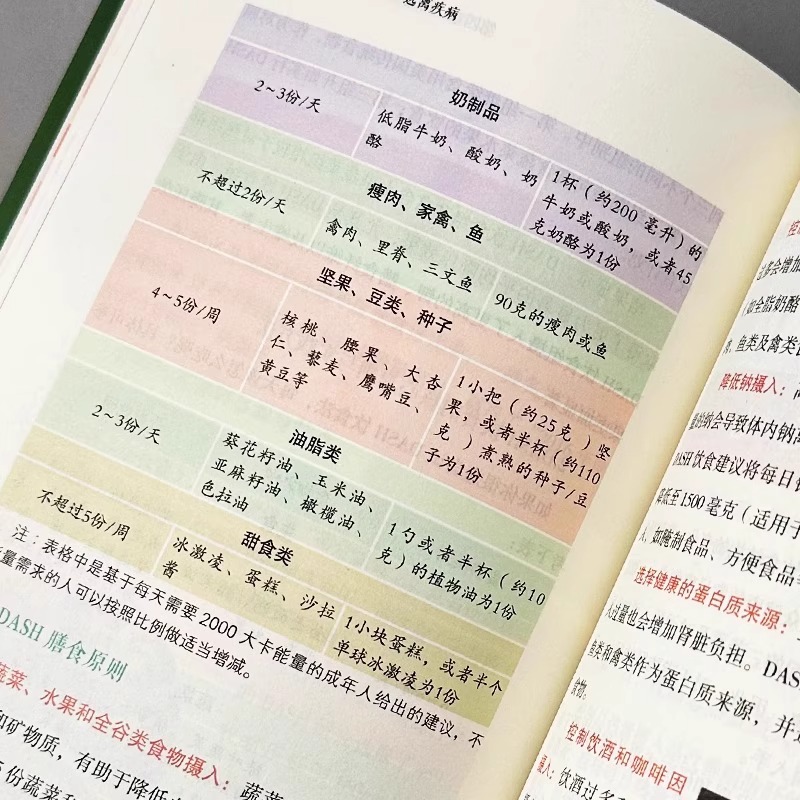 离疾病
奶制品
2～3份/天
低脂牛奶、酸奶、奶
酪
1杯（约200 毫升）的
牛奶或酸奶，或者45
克奶酪为1份
瘦肉、家禽、鱼
不超过2份/天
禽肉、里脊、三文鱼
90克的瘦肉或鱼
坚果、豆类、种子
4～5份/周
核桃、腰果、大杏
仁、藜麦、鹰嘴豆、
黄豆等
1小把（约25克）坚
果，或者半杯（约110
克）煮熟的种子/豆
子为1份
油脂类
2～3份/天
葵花籽油、玉米油、
亚麻籽油、橄榄油、
色拉油
1勺或者半杯（约10
克）的植物油为1份
甜食类
不超过5份/周
冰激凌、蛋糕、沙拉
酱
1小块蛋糕，或者半个
单球冰激凌为1份
注：表格中是基于每天需要 2000 大卡能量的成年人给出的建议，不
量需求的人可以按照比例做适当增减。
DASH 膳食原则
蔬菜、水果和全谷类食物摄入：蔬菜
和矿物质，有助于降低
份蔬菜
会增加
如全脂奶酪
鱼类及禽类
降低钠摄入：
量的钠会导致体内钠
DASH 饮食建议将每日
降低至1500 毫克（适用于
如腌制食品、方便食品
选择健康的蛋白质来源：
入过量也会增加肾脏负担。DAS
鱼类和禽类作为蛋白质来源，并
食物。
控制饮酒和咖啡因
摄入：饮酒过多